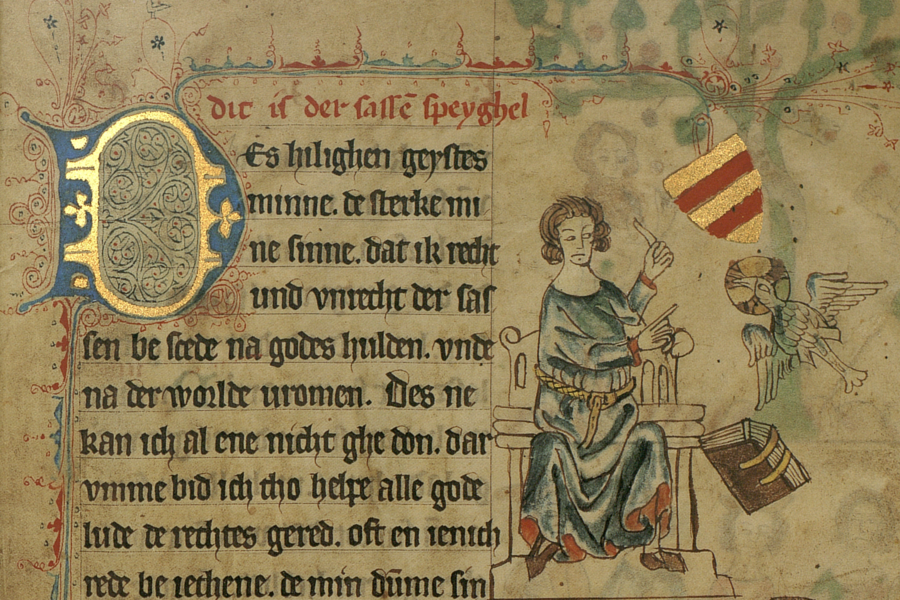 dit is der sassē speyghel
Des hilighen geystes
minne. de sterke mi
ne sinne. dat ik recht
und vnrecht der sas
sen be scede na godes hulden. vnde
na der worlde uromen. Des ne
kan ich al ene nicht ghe don. dar
vmme bid ich tho helpe alle gode
lude de rechtes gered. oft en ienich
rede be iechene. de min dūme sin